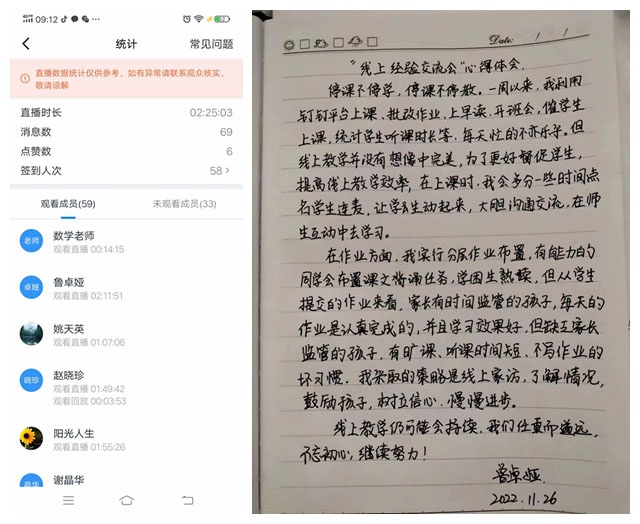 09:12
统计
常见问题
直播数据统计仅供参考，如有异常请联系观众核实，
敬请谅解
直播时长 02:25:03
消息数 69
点赞数 6
签到人次 58 >
观看成员(59) 未观看成员(33)
老师
数学老师
观看直播 00:14:15
卓娅
鲁卓娅
观看直播 02:11:51
姚天英
观看直播 01:07:06
晓珍
赵晓珍
观看直播 01:49:42
观看回放 00:03:53
阳光人生
观看直播 01:55:26
晶华
谢晶华
Date: / /
“线上经验交流会”心得体会.
停课不停学，停课不停教。一周以来，我利用
钉钉平台上课、批改作业、上早读、开班会，催学生
上课，统计学生听课时长等，每天忙的不亦乐乎。但
线上教学并没有想像中完美，为了更好督促学生，
提高线上教学效率，在上课时，我会多分一些时间点
名学生连麦，让学生动起来，大胆沟通交流，在师
生互动中去学习。
在作业方面，我实行分层作业布置，有能力的
同学会布置课文背诵任务，学困生熟读，但从学生
提交的作业来看，家长有时间监管的孩子，每天的
作业是认真完成的，并且学习效果好，但缺乏家长
监管的孩子，有旷课、听课时间短、不写作业的
坏习惯，我采取的策略是线上家访，了解情况，
鼓励孩子，树立信心，慢慢进步。
线上教学仍可能会持续，我们任重而道远，
不忘初心，继续努力！
鲁卓娅
2022.11.26